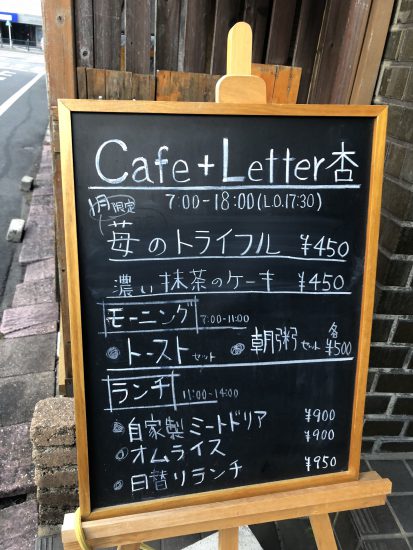 Cafe+Letter杏
7:00-18:00(L.O.17:30)
1月限定
苺のトライフル ¥450
濃い抹茶のケーキ ¥450
モーニング 7:00-11:00
・トーストセット ・朝粥セット 各¥500
ランチ 11:00-14:00
・自家製ミートドリア ¥900
・オムライス ¥900
・日替りランチ ¥950